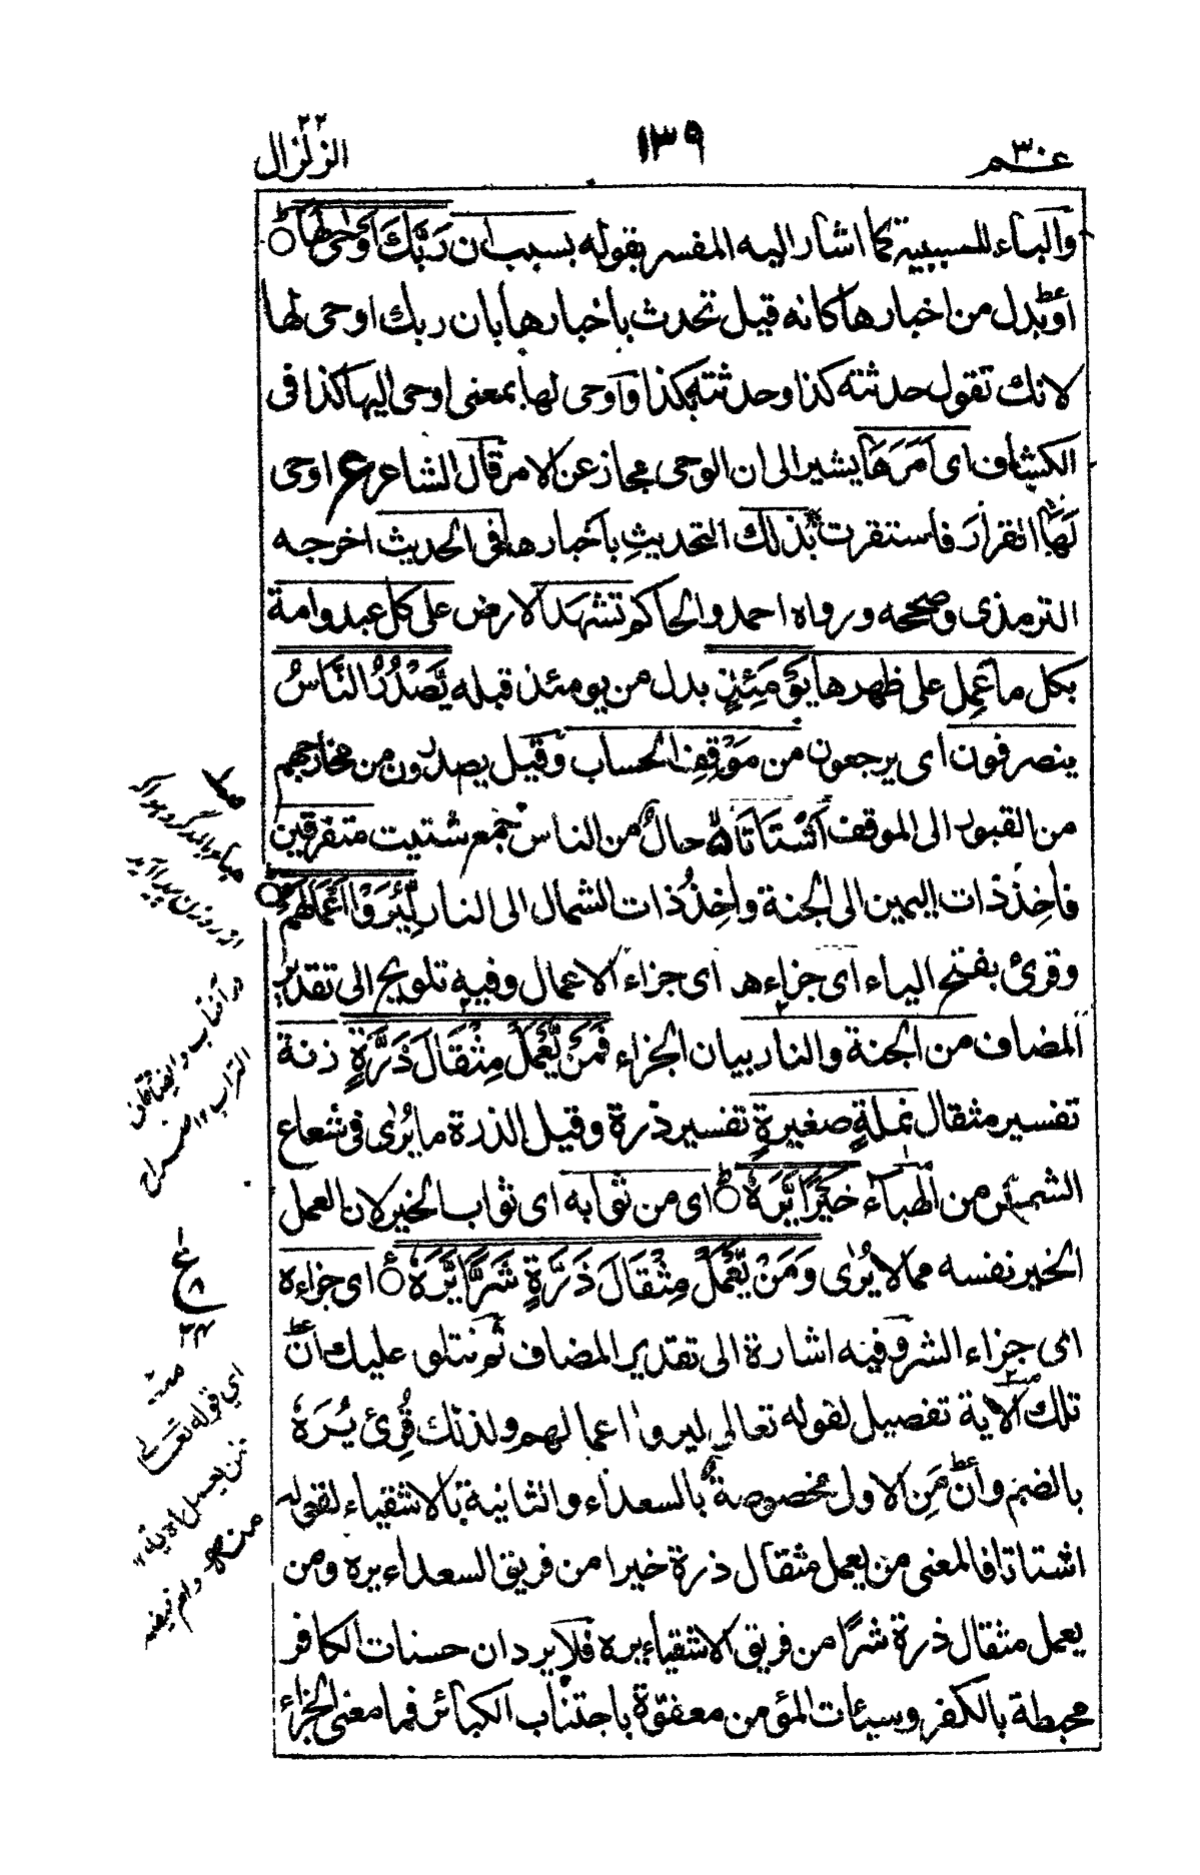 عم ٣٠
١٣٩
الزلزال
والباء للسببية كما اشار اليه المفسر بقوله بسبب ان رَبَّكَ اَوْحٰى لَهَا
او بدل من اخبارها كانه قيل تحدث باخبارها بان ربك اوحى لها
لانك تقول حدثته كذا وحدثته بكذا واوحى لها بمعنى اوحى اليها كذا فى
الكشاف اى اَمَرَهَا يشير الى ان الوحى مجاز عن الامر قال الشاعر ع اوحى
لَهَا القرارَ فاستقرت بذلك التحديثِ باخبارها فى الحديث اخرجه
الترمذى وصححه ورواه احمد والحاكم تشهد الارض على كل عبد وامة
بكل ما عمِل على ظهرها يَوْمَئِذٍ بدل من يومئذ قبله يَّصْدُرُ النَّاسُ
ينصرفون اى يرجعون من مَوْقِفِ الحساب وقيل يصدرون من مخارجهم
من القبور الى الموقف اَشْتَاتًا حالٌ من الناس جمع شتيت متفرقين
فاخِذٌ ذات اليمين الى الجنة واٰخِذٌ ذات الشمال الى النار لِّيُرَوْا اَعْمَالَهُمْ
وقرئ بفتح الياء اى جزاءها اى جزاء الاعمال وفيه تلويح الى تقدير
المضاف من الجنة والنار بيان الجزاء فَمَنْ يَّعْمَلْ مِثْقَالَ ذَرَّةٍ زنة
تفسير مثقال نملةٍ صغيرةٍ تفسير ذرة وقيل الذرة ما يُرٰى فى شعاع
الشمس من الهباء خَيْرًا يَّرَهٗ اى من ثوابه اى ثواب الخير لان العمل
الخير نفسه مما لا يُرٰى وَمَنْ يَّعْمَلْ مِثْقَالَ ذَرَّةٍ شَرًّا يَّرَهٗ اى جزاءه
اى جزاء الشر وفيه اشارة الى تقدير المضاف ثم نتلو عليك انّ
تلك الاية تفصيل لقوله تعالى ليروا اعمالهم ولذلك قُرِئ يُرَهٗ
بالضم وانّ مَن الاولى مخصوصة بالسعداء والثانية بالاشقياء لقوله
اشتاتا فالمعنى من يعمل مثقال ذرة خيرا من فريق السعداء يره ومن
يعمل مثقال ذرة شرًّا من فريق الاشقياء يره فلا يرد ان حسنات الكافر
محبطة بالكفر وسيئات المؤمن معفوّة باجتناب الكبائر فما معنى الجزاء
هباء بالمد گرد وهواكه
از روزن پديد آيد
در آفتاب
التراب ١٢ صراح
ع
٨
٢٤
اي قوله تعالى
فمن يعمل الاية
منه